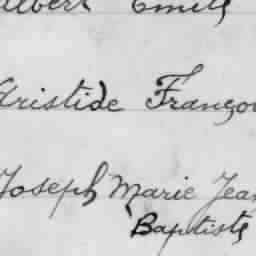 Albert Emile
Aristide Françoi
Joseph Marie Jean
Baptiste